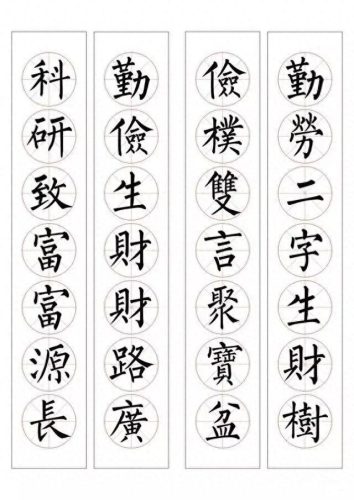 勤勞二字生財樹
儉樸雙言聚寶盆
勤儉生財財路廣
科研致富富源長